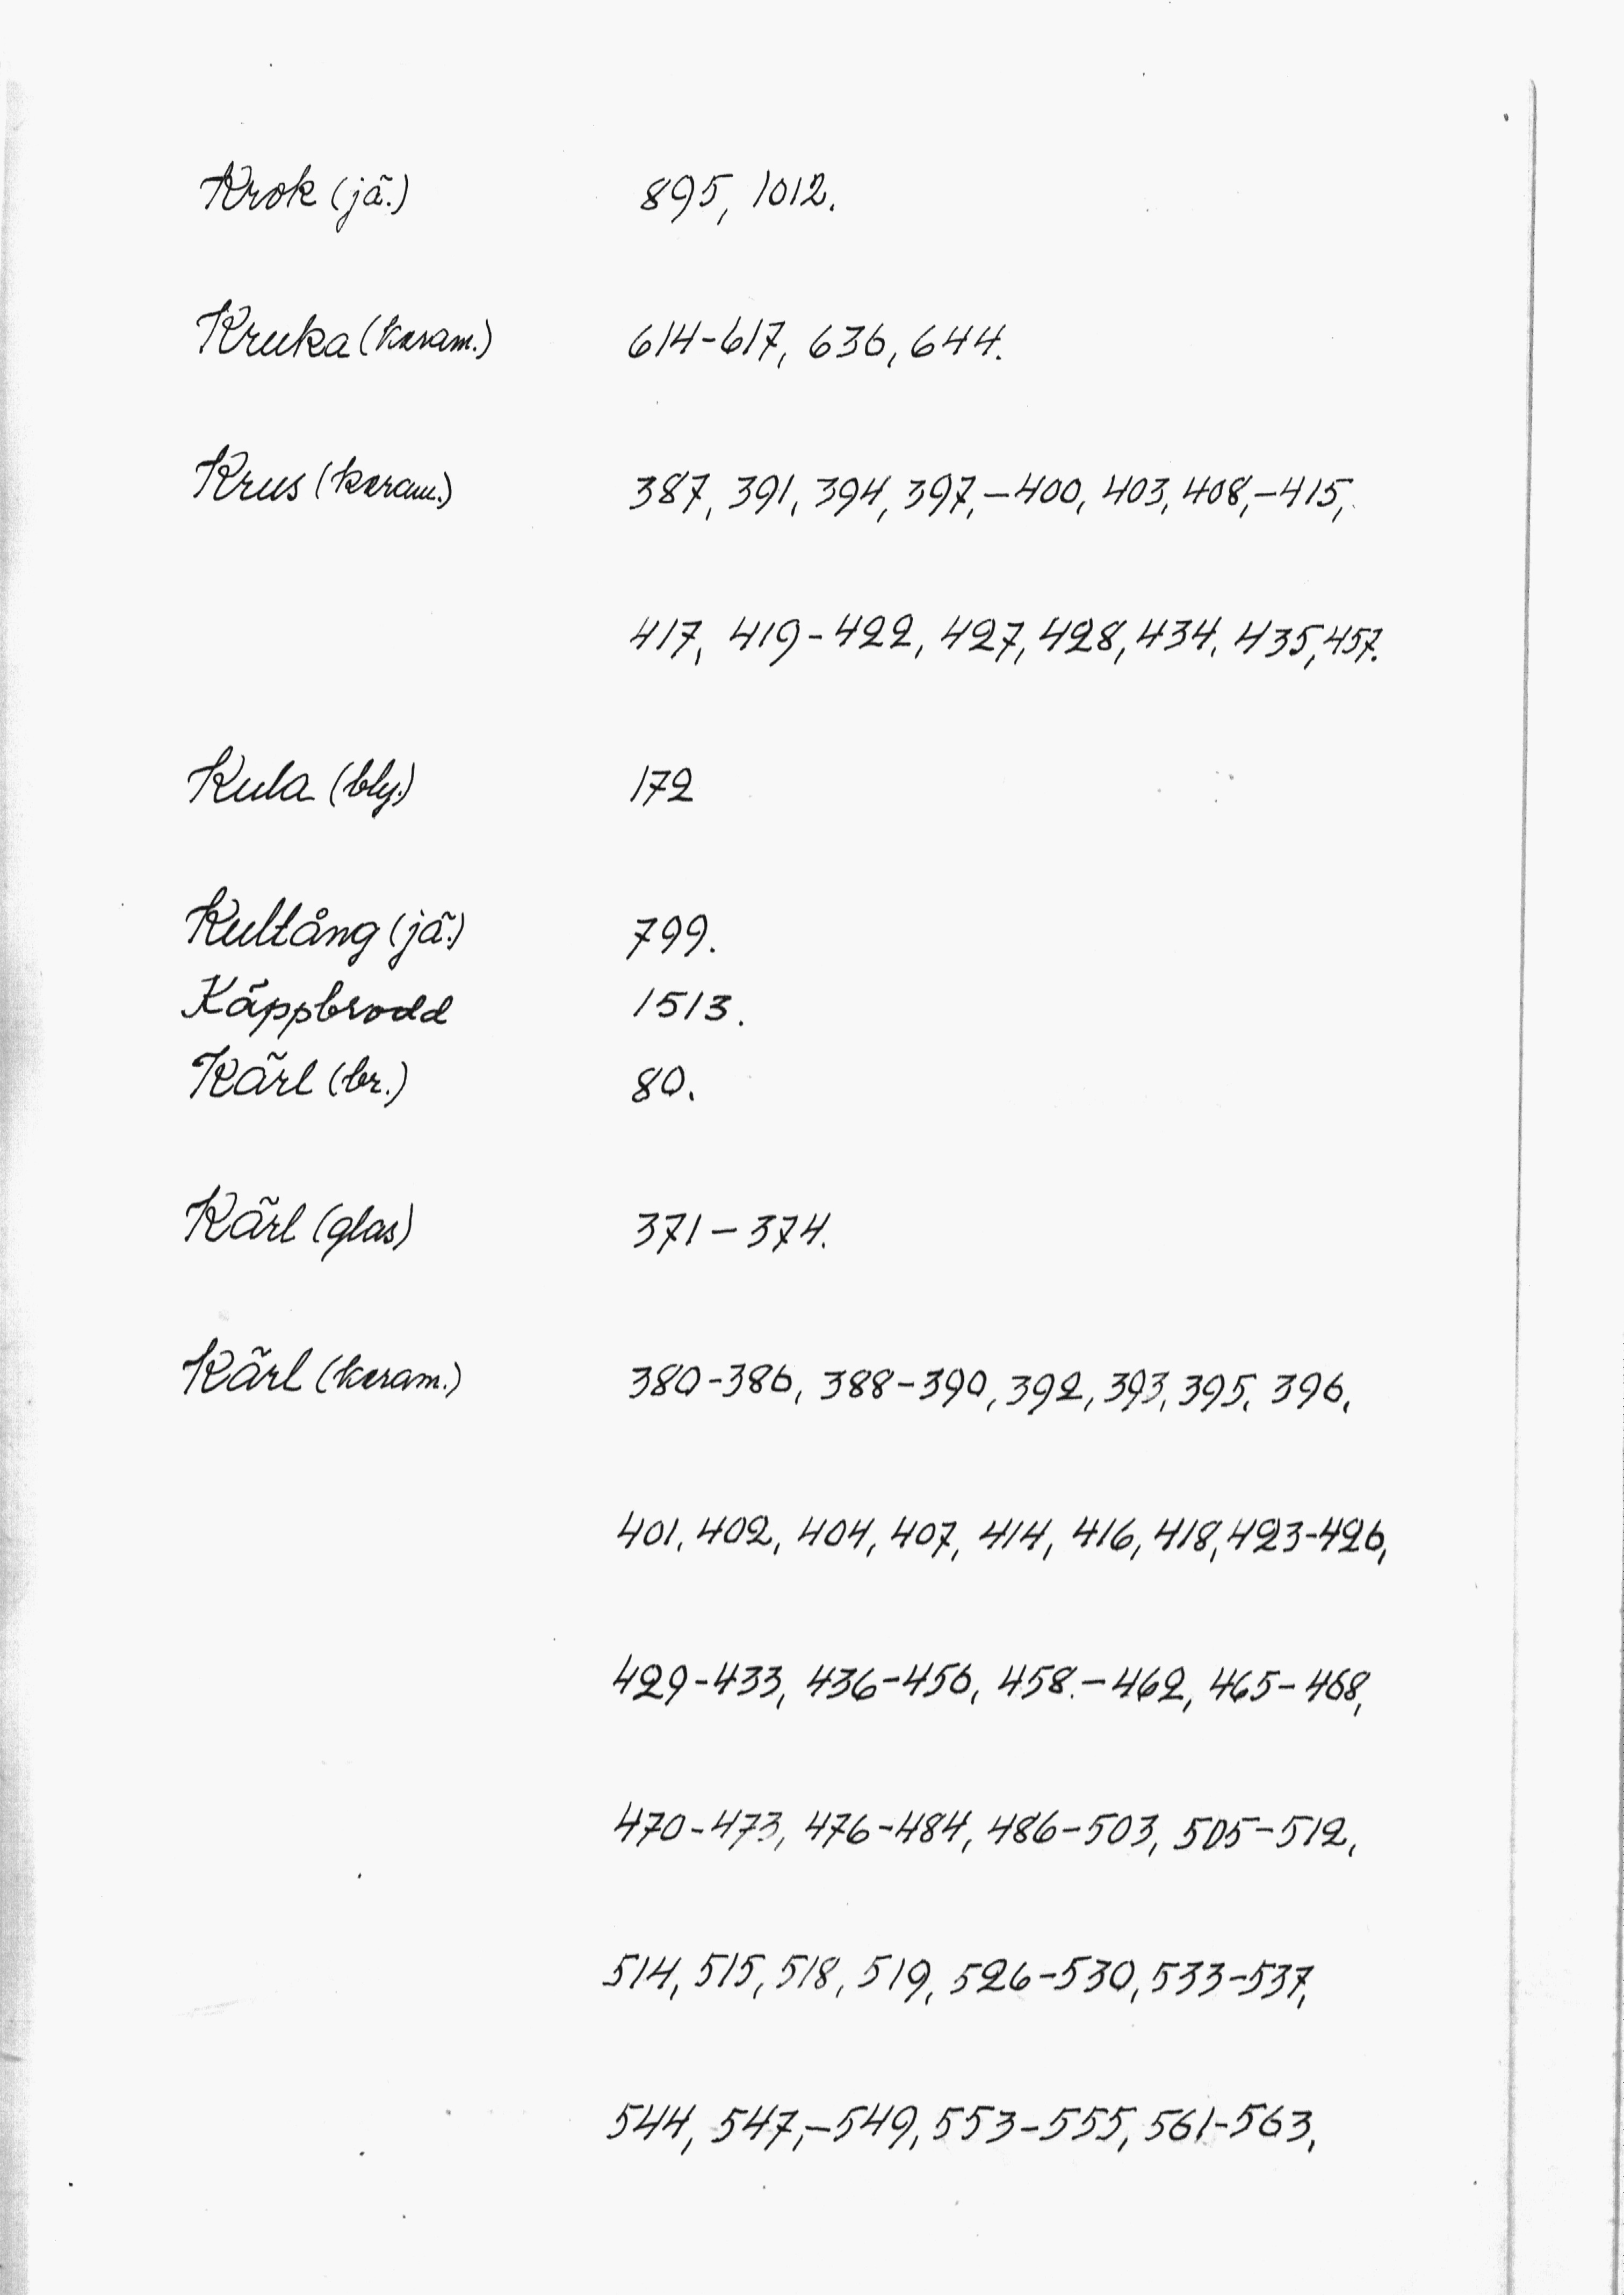 Krok (jä.) 895, 1012.
Kruka (keram.) 614-617, 636, 644.
Krus (keram.) 387, 391, 394, 397,-400, 403, 408,-415,
417, 419-422, 427, 428, 434, 435, 457.
Kula (bly.) 172
Kultång (jä.) 799.
Käppbrodd 1513.
Kärl (br.) 80.
Kärl (glas) 371-374.
Kärl (keram.) 380-386, 388-390, 392, 393, 395, 396,
401, 402, 404, 407, 414, 416, 418, 423-426,
429-433, 436-456, 458.-462, 465-468,
470-473, 476-484, 486-503, 505-512,
514, 515, 518, 519, 526-530, 533-537,
544, 547,-549, 553-555, 561-563,